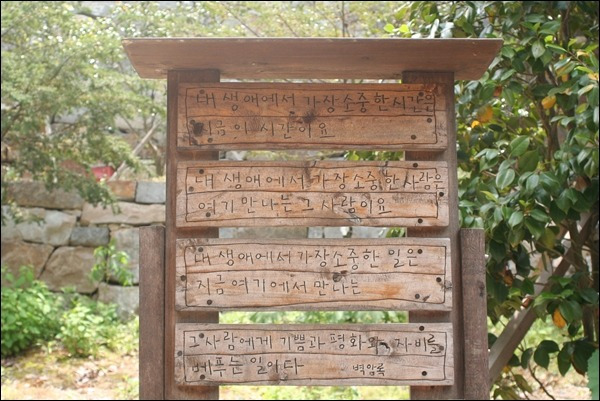 내 생애에서 가장 소중한 시간은
지금 이 시간이요
내 생애에서 가장 소중한 사람은
여기 만나는 그 사람이요
내 생애에서 가장 소중한 일은
지금 여기에서 만나는
그 사람에게 기쁨과 평화와 자비를
베푸는 일이다 벽암록